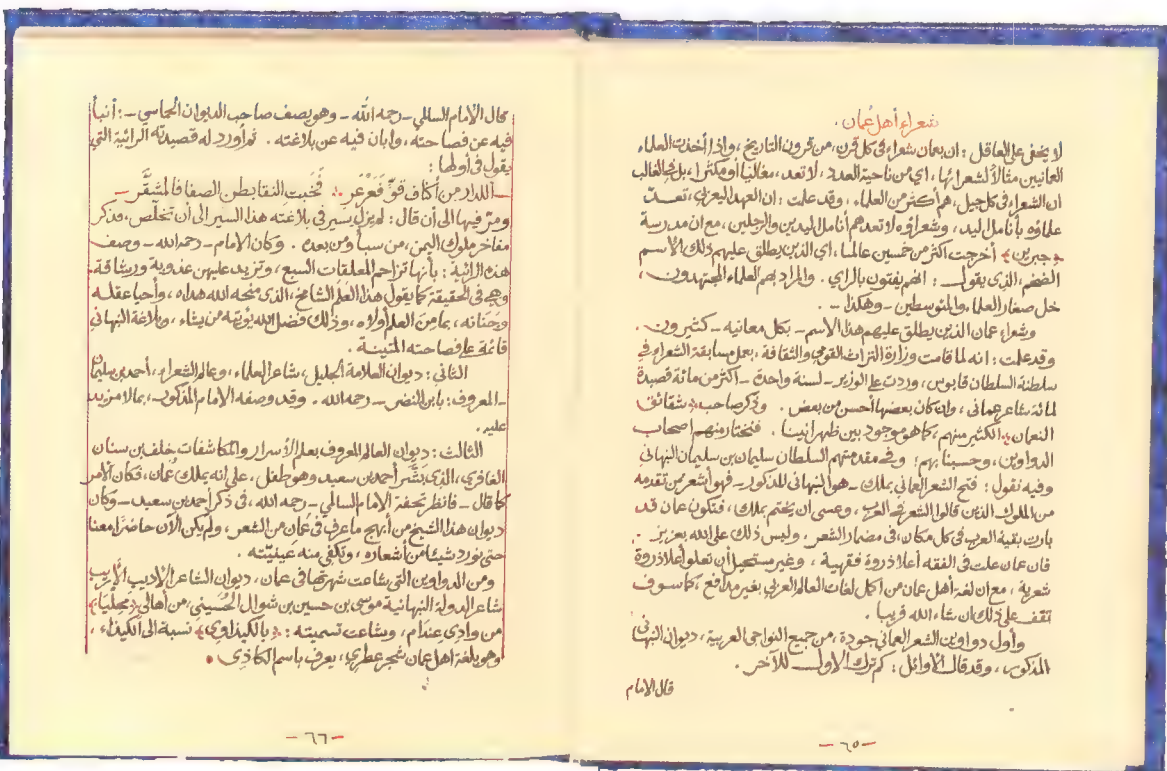 شعراء أهل عُمان .
لا يخفى على العاقل : ان بعمان شعراء في كل قرن ، من قرون التاريخ ، واذا أخذت العلماء
العمانيين مثالاً لشعرائها ، اي من ناحية العدد ، لا تعد ، مغاليا أو مكثرا ، بل في الغالب
ان الشعراء في كل جيل ، هم أكثر من العلماء . وقد علت : ان العهد اليعربي ، تعد
علماؤه بأنامل اليد ، وشعراؤه لا تعدهم أنامل اليدين والرجلين ، مع ان مدرسة
﴿جبرين﴾ أخرجت اكثر من خمسين عالما ، اي الذين يطلق عليهم ذلك الاسم
الضخم ، الذي يقول : انهم يفتون بالرأي . والمراد بهم العلماء المجتهدون ،
خل صغار العلماء ، والمتوسطين - وهكذا - .
وشعراء عمان الذين يطلق عليهم هذا الاسم - بكل معانيه - كثيرون .
وقد علت : انه لما قامت وزارة التراث القومي والثقافة ، بعمل مسابقة الشعراء في
سلطنة السلطان قابوس ، وردت على الوزير - لسنة واحدة - اكثر من مائة قصيدة
لمائة شاعر عماني ، وان كان بعضها أحسن من بعض . وذكر صاحب ﴿شقائق
النعمان﴾ الكثير منهم ، كما هو موجود بين ظهرانينا . فنختار منهم اصحاب
الدواوين ، وحسبنا بهم ؛ وفي مقدمتهم السلطان سليمان بن سليمان النبهاني
وفيه نقول : فتح الشعر العماني بملك - هو النبهاني المذكور - فهو أشعر من تقدمه
من الملوك الذين قالوا الشعر في العرب ، وعسى ان يختم بملك ، فتكون عمان قد
بارت بقية العرب في كل مكان ، في مضمار الشعر ، وليس ذلك على الله بعزيز .
فان عمان علت في الفقه أعلا ذروة فقهية ، وغير مستحيل أن تعلو أعلا ذروة
شعرية ، مع ان لغة اهل عمان من اكمل لغات العالم العربي بغير مدافع ، كما سوف
تقف على ذلك ان شاء الله قريبا .
وأول دواوين الشعر العماني جودة ، من جميع النواحي العربية ، ديوان النبهاني
المذكور ، وقد قال الأوائل : كم ترك الاول للآخر .
قال الامام
- ٦٥ -
قال الامام السالمي - رحمه الله - وهو يصف صاحب الديوان الحماسي - : أنبأ
فيه عن فصاحته ، وابان فيه عن بلاغته . ثم أورد له قصيدته الرائية التي
يقول في أولها :
- اللدار من أكناف قوٍّ فعرعر ٭ فخبت النقا بطن الصفا فالمشقَّر -
ومرّ فيها الى أن قال : لم يزل يسير في بلاغته هذا السير الى أن تخلّص ، فذكر
مفاخر ملوك اليمن ، من سبأ ومن بعده . وكان الامام - رحمه الله - وصف
هذه الرائية : بأنها تزاحم المعلقات السبع ، وتزيد عليهن عذوبة ورشاقة .
وهي في الحقيقة كما يقول هذا العلَم الشامخ ، الذي منحه الله هداه ، وأحيا عقله
وجَنانه ، بما من العلم أولاه ، وذلك فضل الله يؤتيه من يشاء ، وبلاغة النبهاني
قائمة على فصاحته المتينة .
الثاني : ديوان العلامة الجليل ، شاعر العلماء ، وعالم الشعراء ، أحمد بن سليمان
- المعروف : بابن النضر - رحمه الله . وقد وصفه الامام المذكور ، بما لا مزيد
عليه .
الثالث : ديوان العالم المعروف بعلم الأسرار والمكاشفات خلف بن سنان
الغافري ، الذي بَشَّر أحمد بن سعيد ، وهو طفل ، على انه يملك عُمان ، فكان الأمر
كما قال - فانظر تحفة الامام السالمي - رحمه الله ، في ذكر احمد بن سعيد - وكان
ديوان هذا الشيخ من أبهج ما عرف في عُمان من الشعر ، ولم يكن الآن حاضرا معنا
حتى نورد شيئا من أشعاره ، وتكفي منه عينيّته .
ومن الدواوين التي شاعت شهرتها في عمان ، ديوان الشاعر الاديب الأريب
شاعر الدولة النبهانية موسى بن حسين بن شوال الحُسيني ، من أهالي ﴿محليّا﴾
من وادي عندام ، وشاعت تسميته : ﴿بالكيذاوي﴾ نسبة الى الكيذاء ،
وهو بلغة اهل عمان شجر عطري ، يعرف باسم الكاذي .
- ٦٦ -